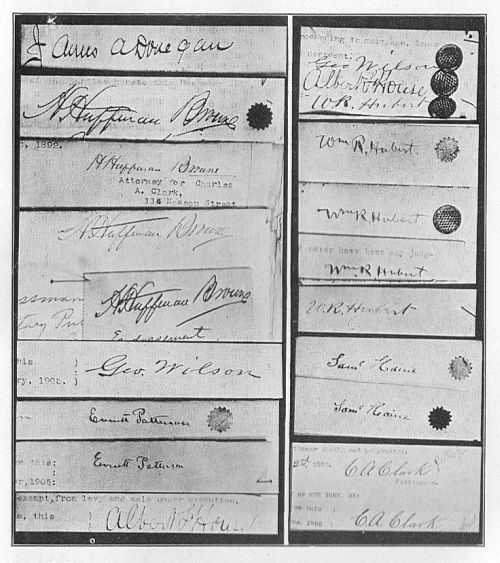 James A Donegan
of the parties hereto this
A. Huffman Browne
, 1892.
A Huffman Browne
Attorney for Charles
A. Clark,
135 Nassau Street
A. Huffman Browne
ssman
tary Pub
A. Huffman Browne
Endorsement
his )
)
ry, 1905. )
Geo. Wilson
Everett Patterson
me this:
:
r, 1905:
Everett Patterson
exempt, from levy and sale under execution.
e, this )
:
Albert C House
to mortgage,
decedent.
Geo Wilson
Albert C House
W.R. Hubert
Wm R. Hubert.
Wm R Hubert
never have been any judg-
Wm R Hubert
W.R. Hubert
Saml Haine
Saml Haine
should not be granted.
2nd, 1892.
C A Clark
Petitioner.
OF NEW YORK, SS:
me this :
:
C A Clark